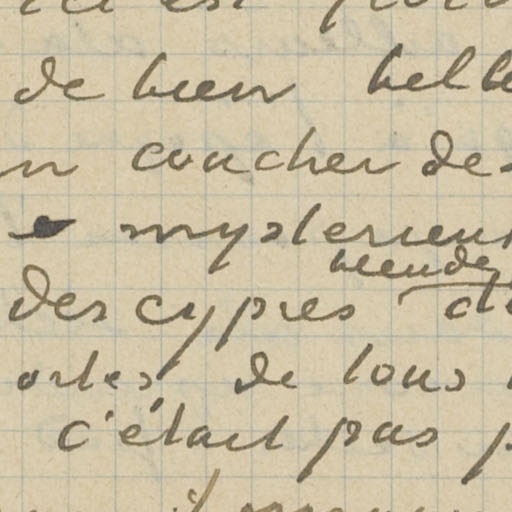 de bien bell
n coucher de
mysterieux
des cypres
ortes, de tous
c'était pas p
il